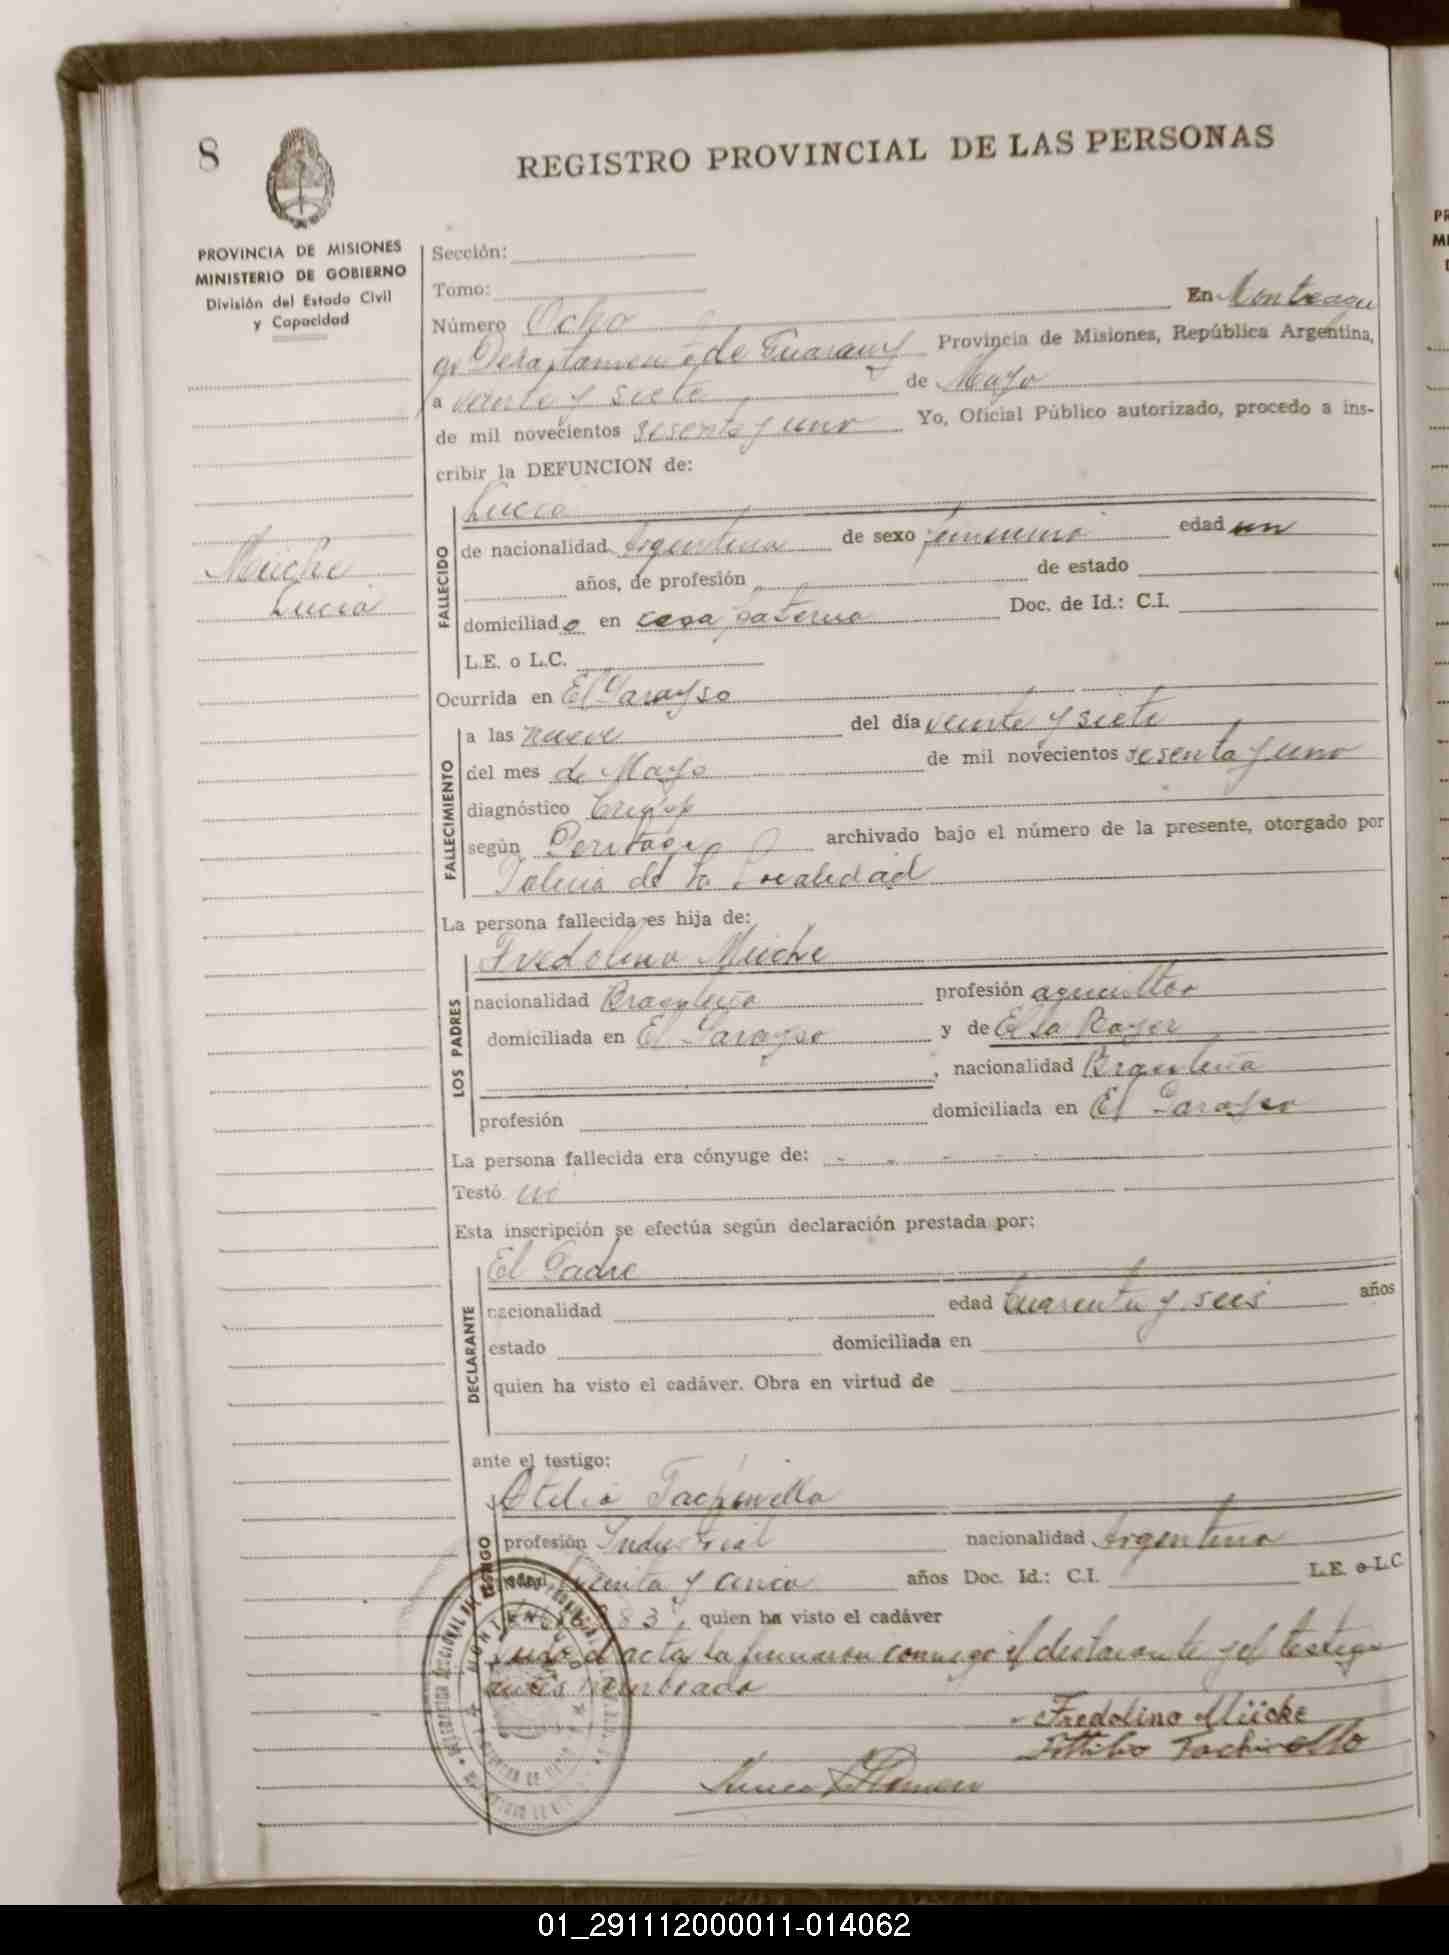 8
REGISTRO PROVINCIAL DE LAS PERSONAS
PROVINCIA DE MISIONES
MINISTERIO DE GOBIERNO
División del Estado Civil
y Capacidad
Müche
Lucia
Sección:
Tomo:
Número Ocho En Monteagu
go Departamento de Guarany Provincia de Misiones, República Argentina,
a veinte y siete de Mayo
de mil novecientos sesenta y uno Yo, Oficial Público autorizado, procedo a ins-
cribir la DEFUNCION de:
FALLECIDO
Lucia
de nacionalidad Argentina de sexo femenino edad un
años, de profesión de estado
domiciliado en casa paterna Doc. de Id.: C.I.
L.E. o L.C.
Ocurrida en El Parayso
FALLECIMIENTO
a las nueve del día veinte y siete
del mes de Mayo de mil novecientos sesenta y uno
diagnóstico
según Peritage archivado bajo el número de la presente, otorgado por
Policia de la Localidad
La persona fallecida es hija de:
LOS PADRES
Fredolino Müche
nacionalidad Brasyleña profesión agricultor
domiciliada en El Parayso y de Elsa
, nacionalidad Brasyleña
profesión domiciliada en El Parayso
La persona fallecida era cónyuge de: - - - -
Testó no
Esta inscripción se efectúa según declaración prestada por:
DECLARANTE
El Padre
nacionalidad edad cuarenta y seis años
estado domiciliada en
quien ha visto el cadáver. Obra en virtud de
ante el testigo:
TESTIGO
Otilio
profesión Industrial nacionalidad Argentina
edad y cinco años Doc. Id.: C.I. L.E. o L.C.
quien ha visto el cadáver
acta la firmaron conmigo el declarante y el testigo
antes nombrado
Fredolino Mücke